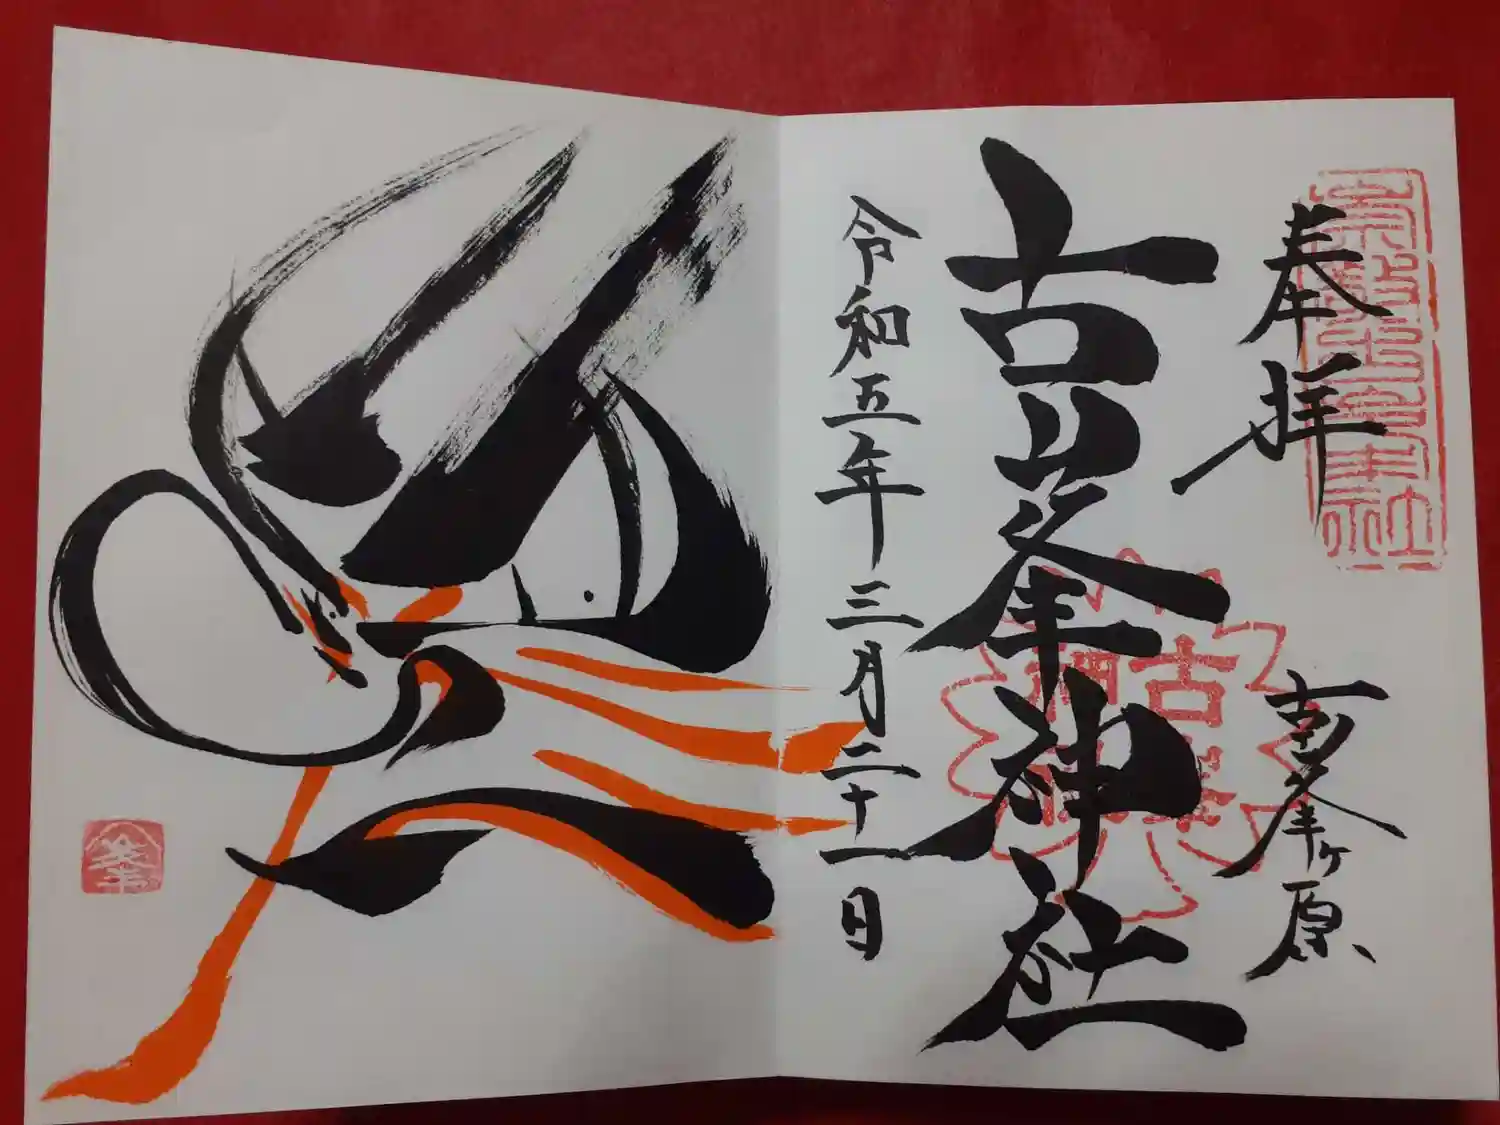 奉拝
古峯ヶ原
古峯神社
令和五年三月二十一日
峯